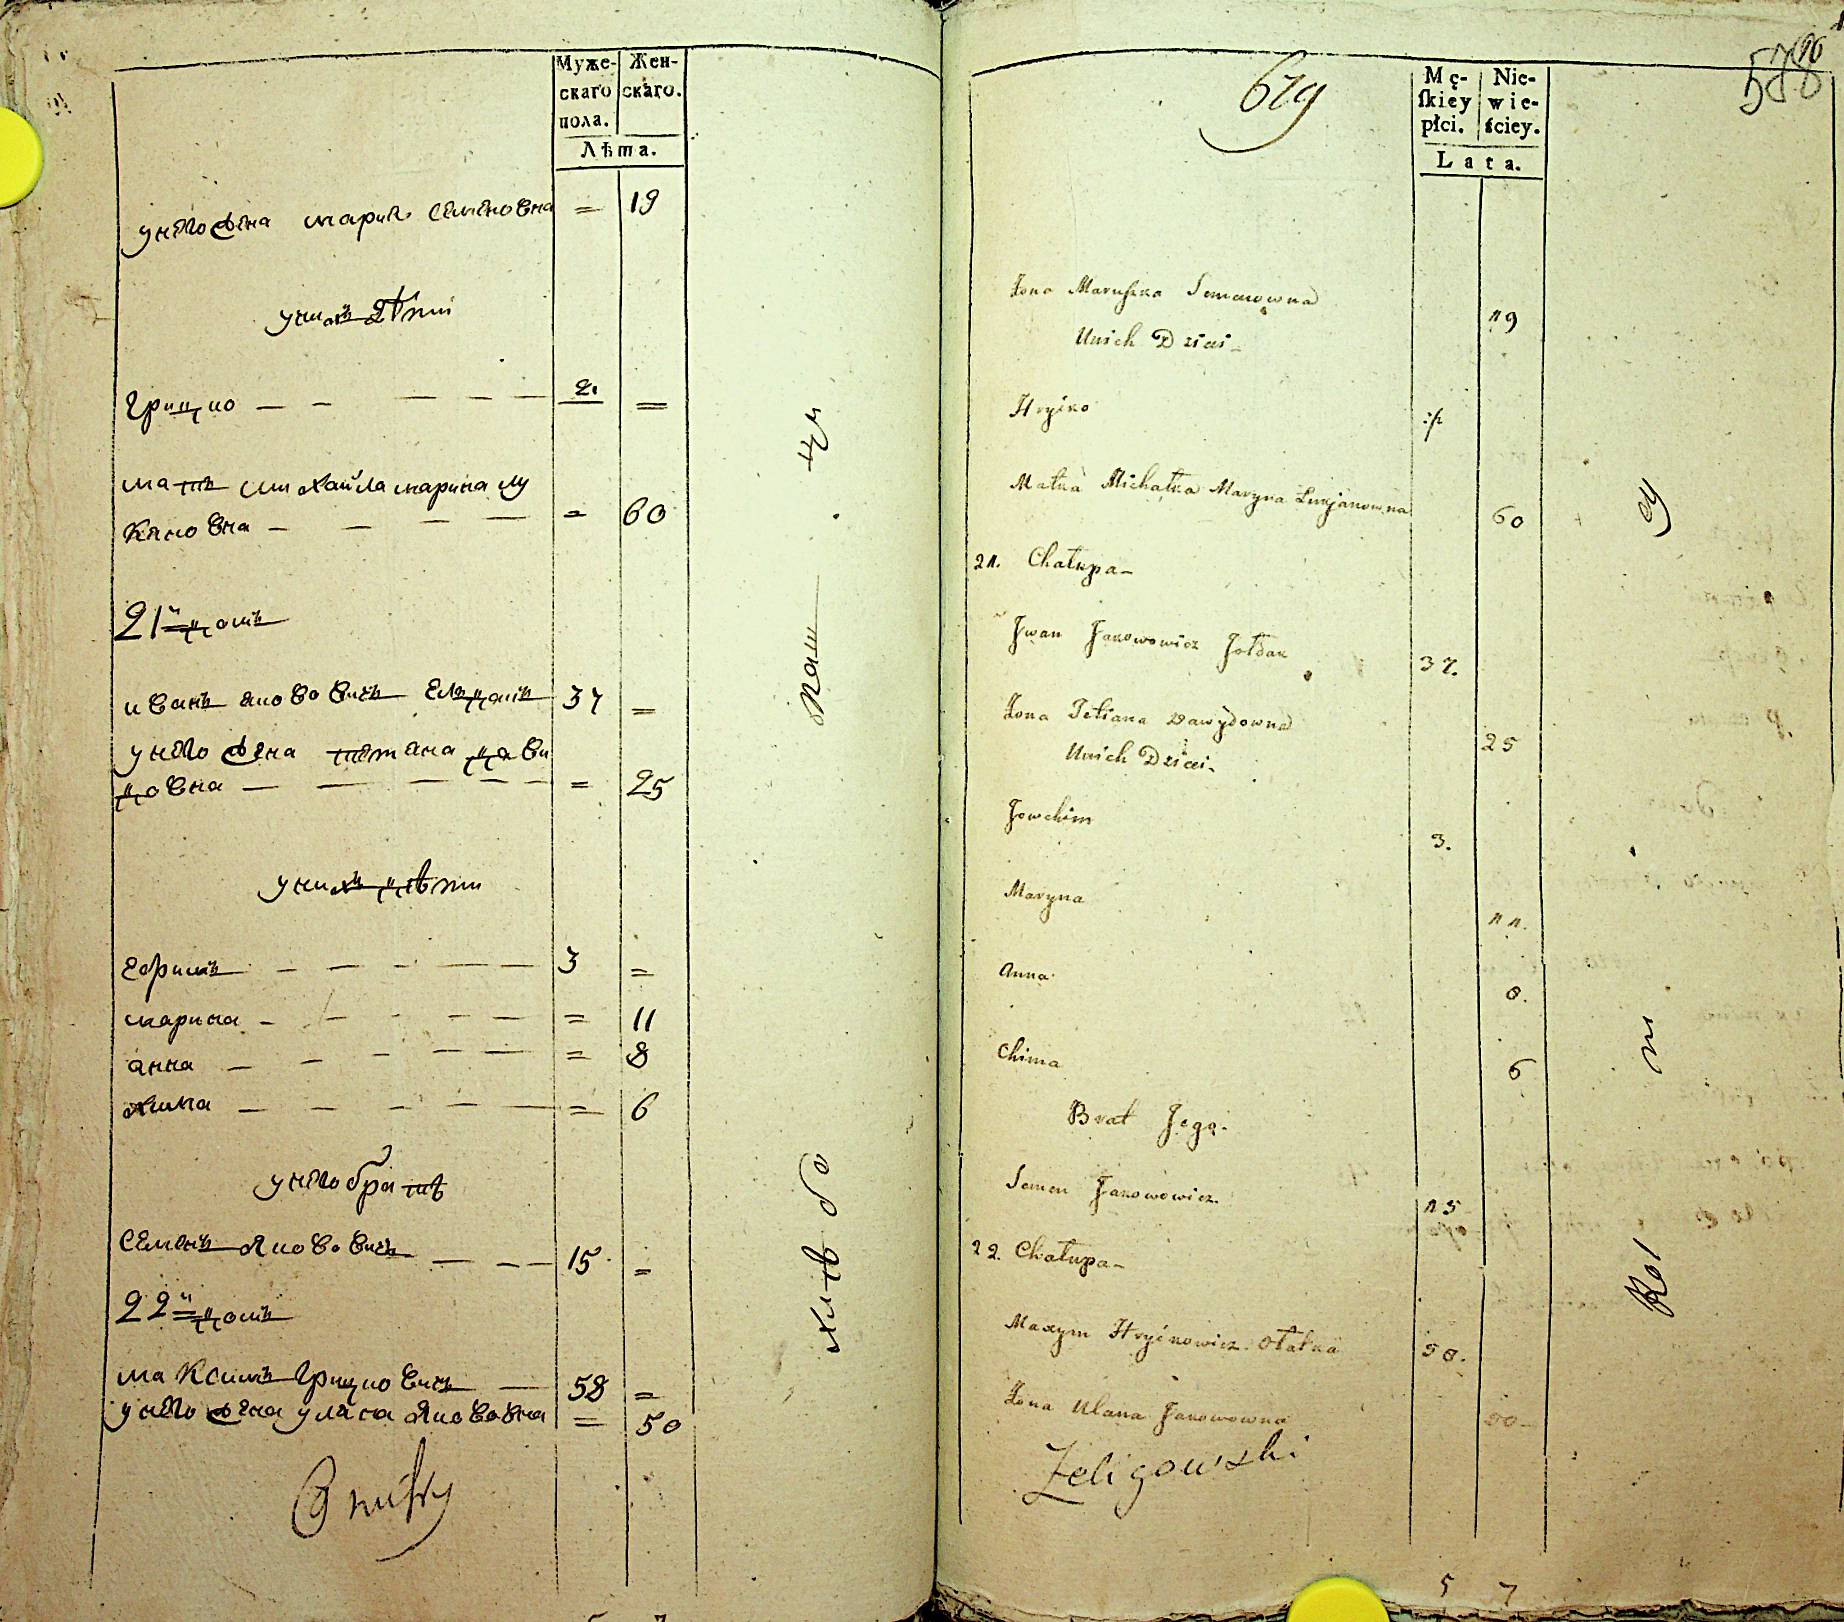 Муже-
скаго
пола.
Жен-
скаго.
Лѣта.
унего жена мария семеновна = 19
унихъ дѣти
грицко — 2. =
мать михайла марина лу
кяновна — = 60
21й домъ
иванъ яковович елданъ 37 =
унего жена тетяна дави
довна — = 25
унихъ дѣти
ефимъ — 3 =
марина — = 11
анна — = 8
химка — = 6
унего братъ
семенъ яковович — 15 =
22й домъ
максимъ грицкович — 58 =
унего жена уляна яковovна = 50
паш ци
хлѣбо
619
588
96
Mę-
ſkiey
płci.
Nie-
wie-
ściey.
Lata.
Żona Maruszka Semenowna 19
Unich Dzieci
Hryćko
Matka Michałka Maryna Łukjanowna 60
21. Chałupa
Jwan Jakowowicz Jołdak 37.
Żona Tetiana Dawydowna 25
Unich Dzieci
Jowchim 3.
Maryna 11.
Anna 8.
Chima 6
Brat Jego.
Semen Jakowowicz 15
22. Chałupa
Maxym Hryćkowicz 58.
Żona Ulana Jakowowna 50
Żeligowski
Rol m ey
5 7